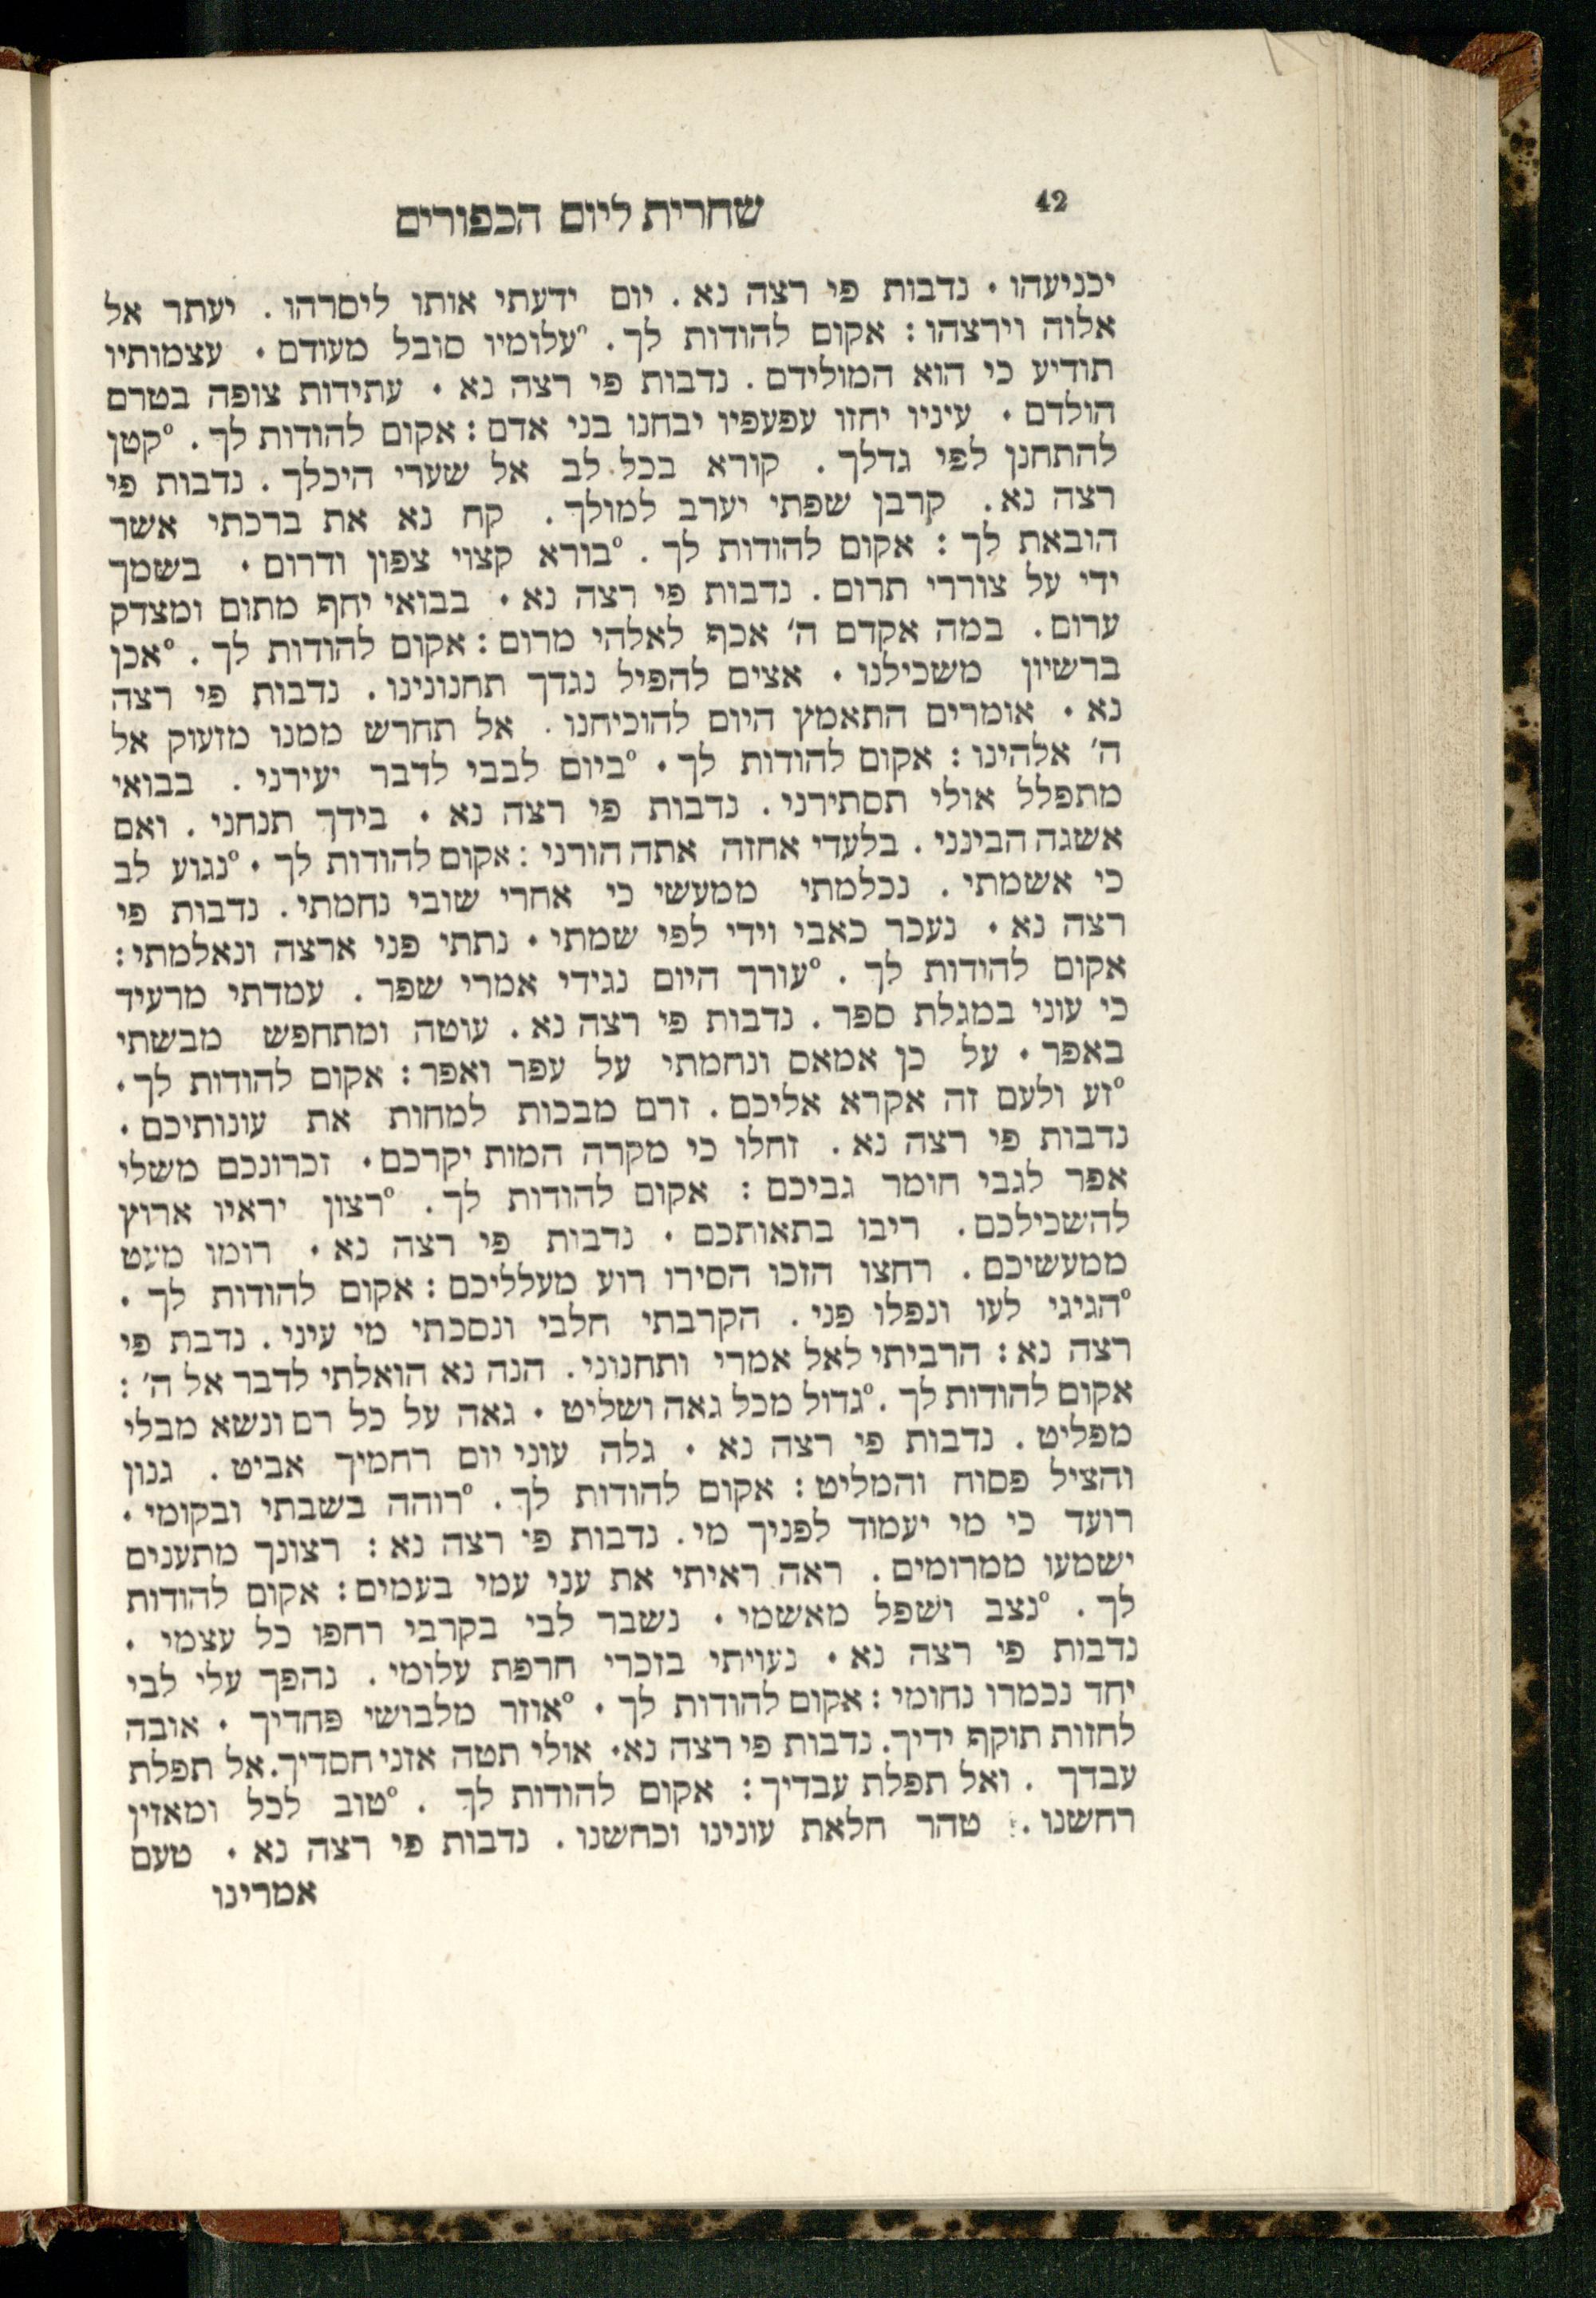 42
שחרית ליום הכפורים
יכניעהו · נדבות פי רצה נא . יום ידעתי אותו ליסרהו . יעתר אל
אלוה וירצהו : אקום להודות לך . °עלומיו סובל מעודם · עצמותיו
תודיע כי הוא המולידם . נדבות פי רצה נא · עתידות צופה בטרם
הולדם · עיניו יחזו עפעפיו יבחנו בני אדם : אקום להודות לך . °קטן
להתחנן לפי גדלך . קורא בכל לב אל שערי היכלך . נדבות פי
רצה נא . קרבן שפתי יערב למולך . קח נא את ברכתי אשר
הובאת לך : אקום להודות לך . °בורא קצוי צפון ודרום · בשמך
ידי על צוררי תרום . נדבות פי רצה נא · בבואי יחף מתום ומצדק
ערום . במה אקדם ה׳ אכף לאלהי מרום : אקום להודות לך . °אכן
ברשיון משכילנו · אצים להפיל נגדך תחנונינו . נדבות פי רצה
נא · אומרים התאמץ היום להוכיחנו . אל תחרש ממנו מזעוק אל
ה׳ אלהינו : אקום להודות לך · °ביום לבבי לדבר יעירני . בבואי
מתפלל אולי תסתירני . נדבות פי רצה נא · בידך תנחני . ואם
אשגה הבינני . בלעדי אחזה אתה הורני : אקום להודות לך · °נגוע לב
כי אשמתי . נכלמתי ממעשי כי אחרי שובי נחמתי . נדבות פי
רצה נא · נעכר כאבי וידי לפי שמתי · נתתי פני ארצה ונאלמתי :
אקום להודות לך . °עורך היום נגידי אמרי שפר . עמדתי מרעיד
כי עוני במגלת ספר . נדבות פי רצה נא . עוטה ומתחפש מבשתי
באפר · על כן אמאס ונחמתי על עפר ואפר : אקום להודות לך ·
°זע ולעם זה אקרא אליכם . זרם מבכות למחות את עונותיכם ·
נדבות פי רצה נא . זחלו כי מקרה המות יקרכם · זכרונכם משלי
אפר לגבי חומר גביכם : אקום להודות לך . °רצון יראיו ארוץ
להשכילכם . ריבו בתאותכם · נדבות פי רצה נא · רומו מעט
ממעשיכם . רחצו הזכו הסירו רוע מעלליכם : אקום להודות לך ·
°הגיגי לעו ונפלו פני . הקרבתי חלבי ונסכתי מי עיני . נדבת פי
רצה נא : הרביתי לאל אמרי ותחנוני . הנה נא הואלתי לדבר אל ה׳ :
אקום להודות לך . °גדול מכל גאה ושליט · גאה על כל רם ונשא מבלי
מפליט . נדבות פי רצה נא · גלה עוני יום רחמיך אביט . גנון
והציל פסוח והמליט : אקום להודות לך . °רוהה בשבתי ובקומי ·
רועד כי מי יעמוד לפניך מי . נדבות פי רצה נא : רצונך מתענים
ישמעו ממרומים . ראה ראיתי את עני עמי בעמים : אקום להודות
לך . °נצב ושפל מאשמי · נשבר לבי בקרבי רחפו כל עצמי ·
נדבות פי רצה נא · נעויתי בזכרי חרפת עלומי . נהפך עלי לבי
יחד נכמרו נחומי : אקום להודות לך · °אוזר מלבושי פחדיך · אובה
לחזות תוקף ידיך . נדבות פי רצה נא · אולי תטה אזני חסדיך . אל תפלת
עבדך . ואל תפלת עבדיך : אקום להודות לך . °טוב לכל ומאזין
רחשנו . טהר חלאת עונינו וכחשנו . נדבות פי רצה נא · טעם
אמרינו